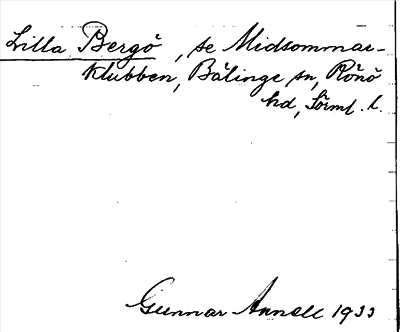 Lilla Bergö, se Midsommar-
klubben, Bälinge sn, Rönö
hd, Sörml. l.
Gunnar Annell 1933